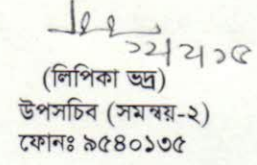 (লিপিকা ভদ্র)
উপসচিব (সমন্বয়-২)
ফোনঃ ৯৫৪০১৩৫